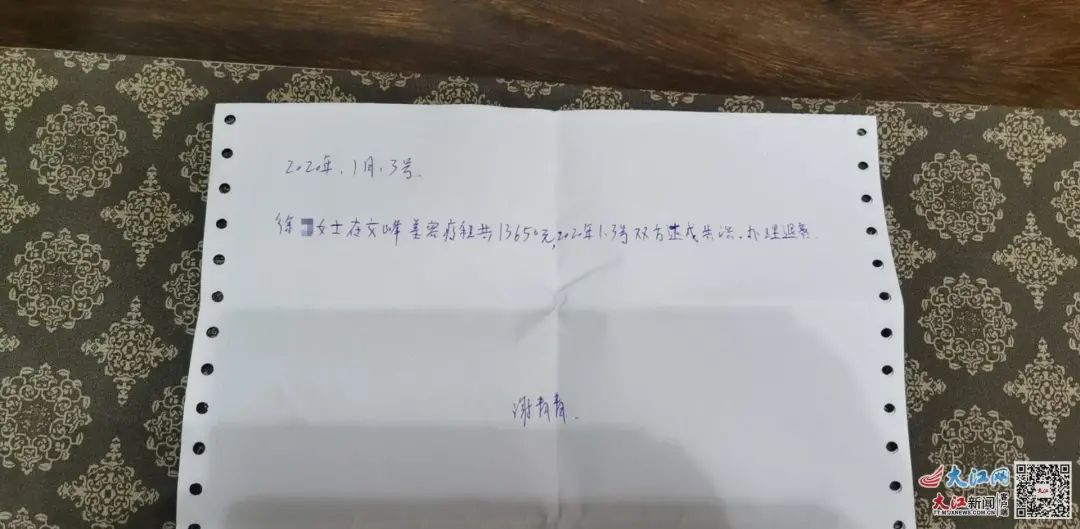 2020年,1月,3号.
徐 女士在文峰美容疗程共13650元,2020年1.3号双方达成共识.办理退费.
谢青青.
大江网
大江新闻 客户端
TT.M.JXNEWS.COM.CN